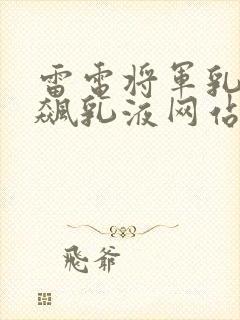 雷电将军乳
飙乳液网站
飛爺